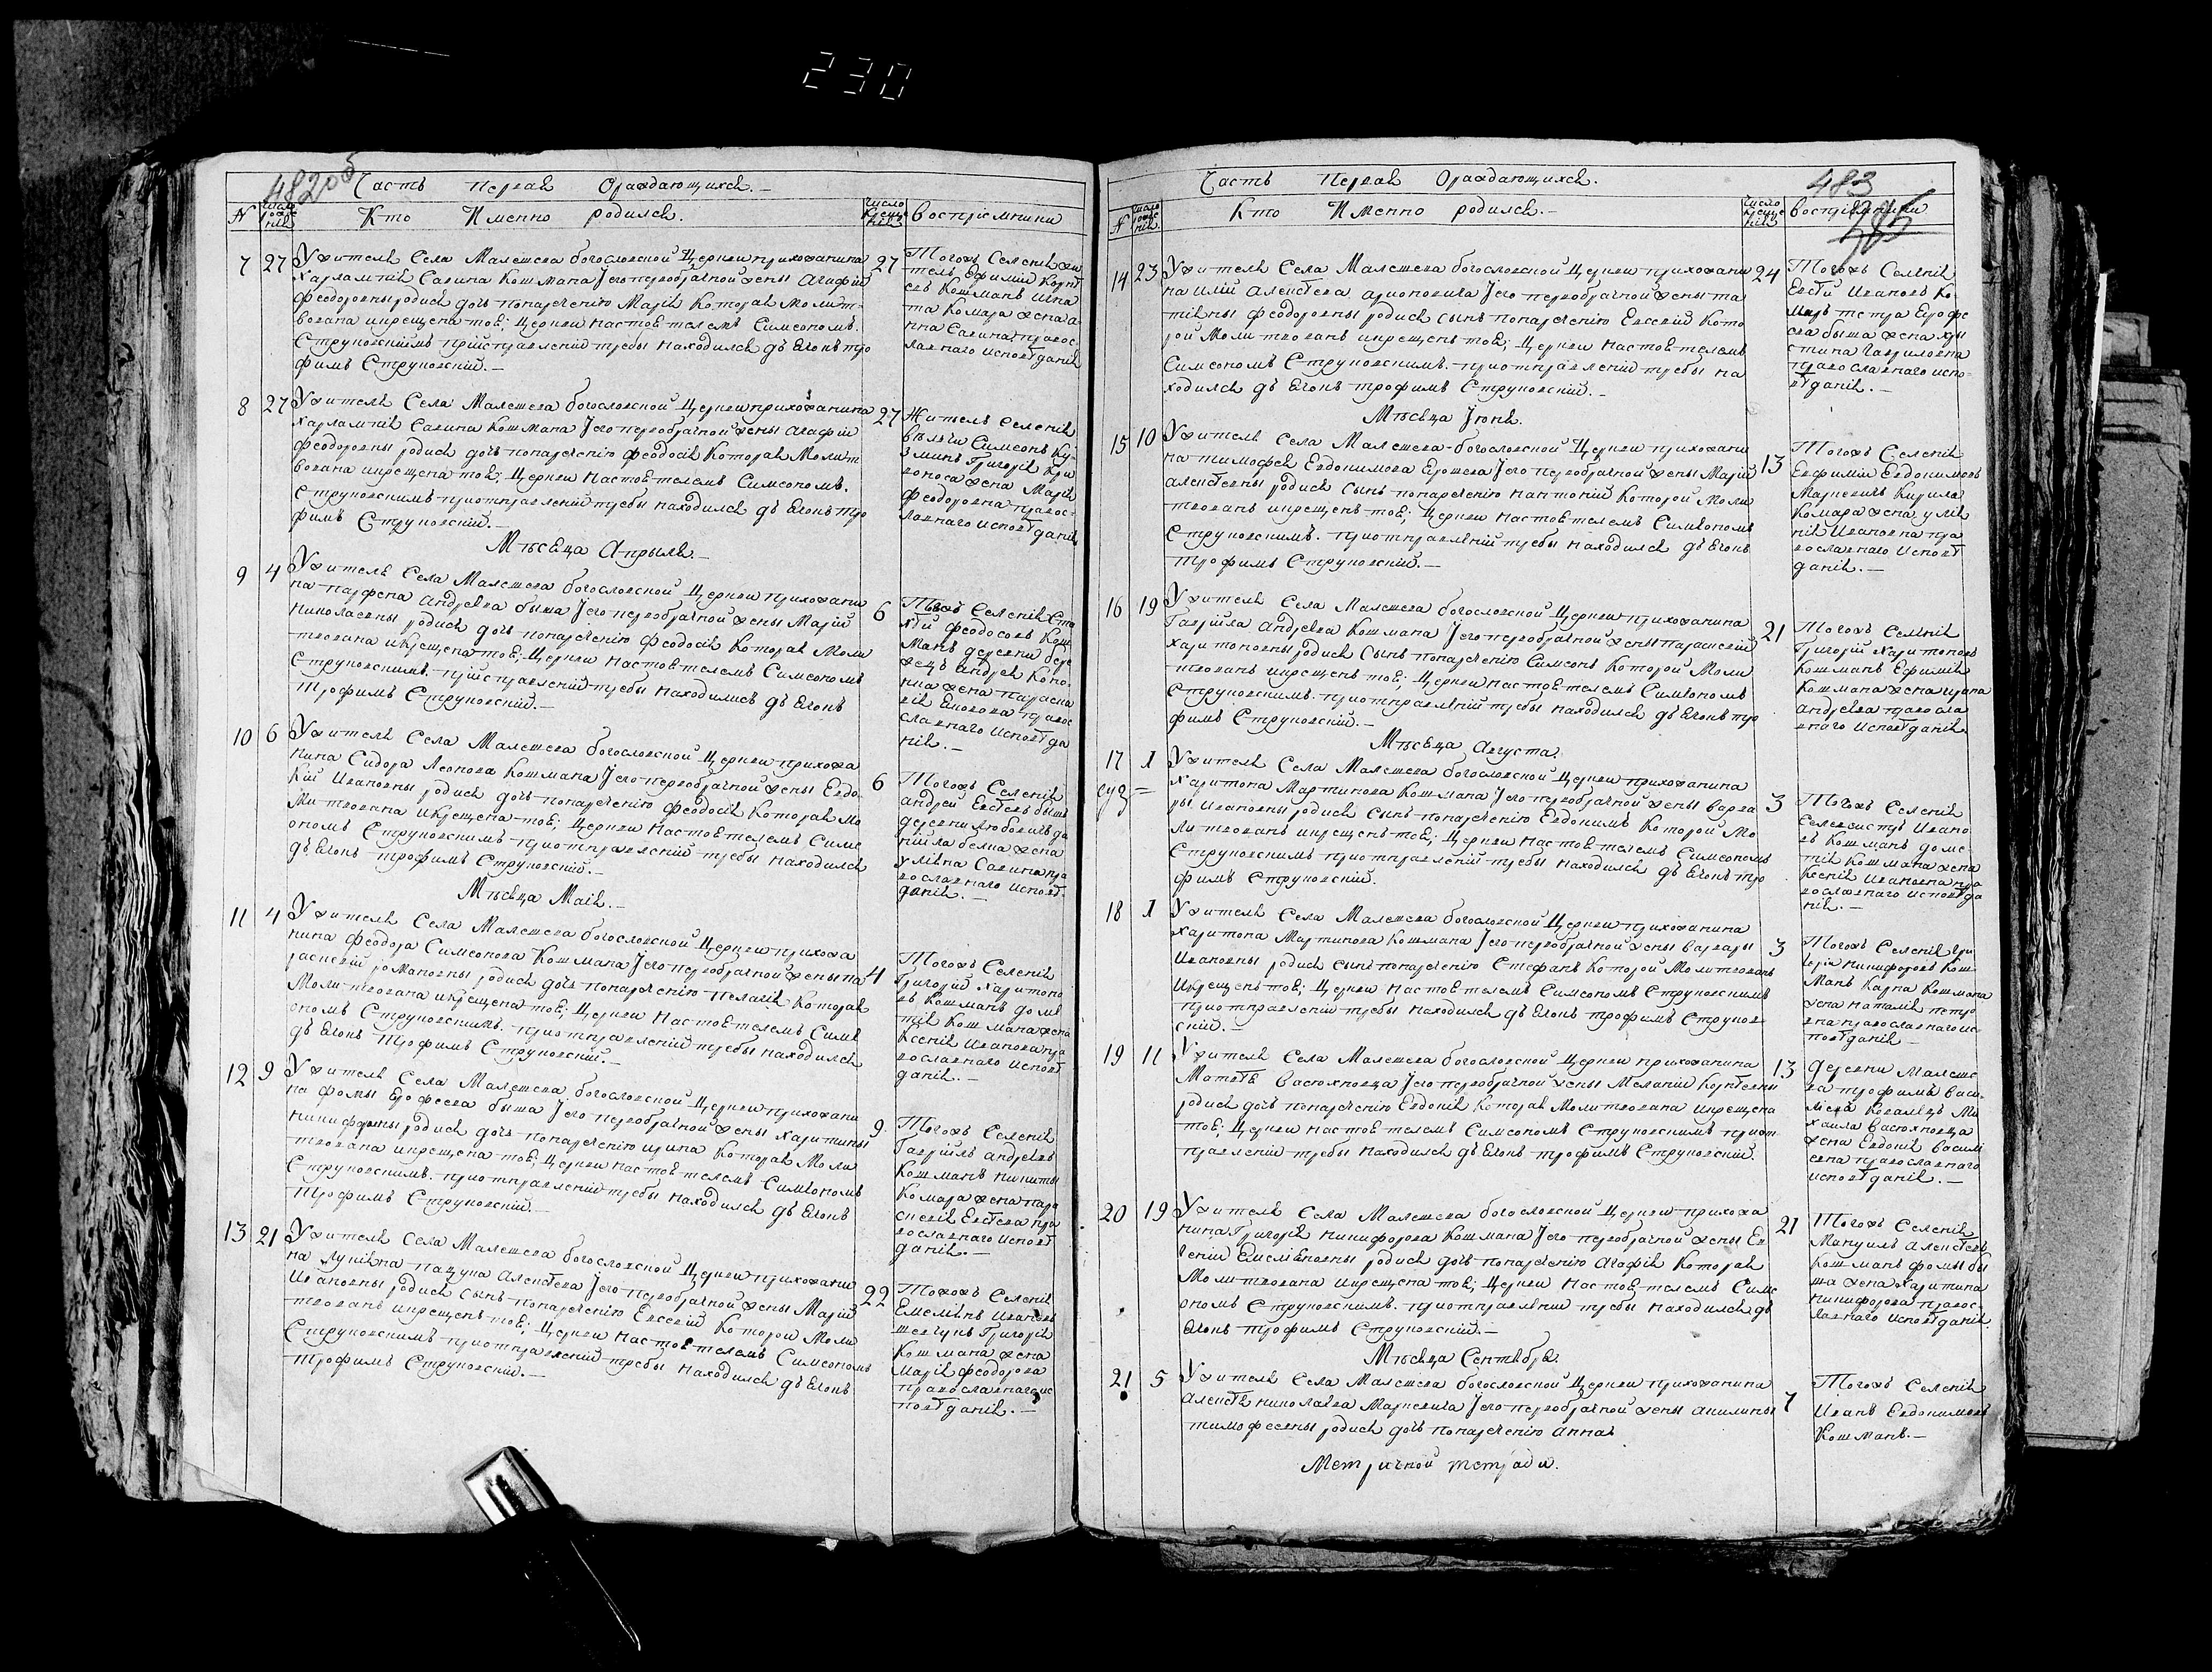 230
482
Часть Первая Ораждающихся.
N Число рожде нія Кто Имянно родился. Число Креще нія Воспріемники
7 27 У жителя Села Малешева богословской Церкви прихожанина
Харлампія Савина Кошмана Jего первобрачной жены Агафіи
Феодоровны родися дочь понаречению Марія Которая Молит-
вована икрещена тоя; Церкви Настоятелемъ Симеономъ.
Струковскимъ приісправленій требы Находился дъячокъ Тро
фимъ Струковскій.
27 Тогожъ Селенія жи
тель Ефимій
Кошманъ Игна
та Комара жена а
нна Савина правос-
лавнаго исповѣданія
8 27 У жителя Села Малешева богословской Церкви прихожанина
Харлампія Савина Кошмана Jего первобрачной жены Агафіи
Феодоровны родися дочь понаречению Феодосія Которая Молит
вована икрещена тоя; Церкви Настоятелемъ Симеономъ.
Струковскимъ приотправленій требы находился дъячокъ Тро
фимъ Струковскій.
27 Житель Селенія
Симеонъ Ку-
зминъ Григорія Кри
воноса жена Марія
Феодоровна правос-
лавнаго исповѣданія
Мѣсяца Апрыля.
9 4 У жителя Села Малешева богословской Церкви прихожани
на Парфена Андреева быша Jего первобрачной жены Маріи
Николаевны родися дочь понаречению Феодосія Которая Моли
твована икрещена тоя; Церкви Настоятелемъ Симеономъ
Струковскимъ. приісправленій требы Находились дъячокъ
Трофимъ Струковскій.
6 Тогожъ Селенія
Феодосовъ Кош
манъ деревни
Андрея Коно-
жена Параске
вія правос
славнаго исповѣда
нія.
10 6 У жителя Села Малешева богословской Церкви прихожа
нина Сидора Леонова Кошмана Jего первобрачной жены Евдо-
кіи Ивановны родися дочь понаречению Феодосія Которая Мо
литвована икрещена тоя; Церкви Настоятелемъ Симе
ономъ Струковскимъ приотправленій требы находился
дъячокъ Трофимъ Струковскій.
6 Тогожъ Селенія
Андрей Евсѣевъ бышъ
деревни
жена
Уліяна Савина пра
вославнаго исповѣ-
данія.
Мѣсяца Маія.
11 4 У жителя Села Малешева богословской Церкви прихожа
нина Феодора Симеонова Кошмана Jего первобрачной жены Па
раскевіи Романовны родися дочь понаречению Пелагія Которая
Молитвована икрещена тоя; Церкви Настоятелемъ Симе
ономъ Струковскимъ. приотправленій требы находился
дъячокъ Трофимъ Струковскій.
4 Тогожъ Селенія
Григорій Харитоно
въ Кошманъ Доме
тія Кошмана жена
Ксенія Иванова пра
вославнаго исповѣ
данія.
12 9 У жителя Села Малешева богословской Церкви прихожани
на Фомы Ерофеева быша Jего первобрачной жены Харитины
Никифоровны родися дочь понаречению Ирина Которая Моли
твована икрещена тоя; Церкви Настоятелемъ Симеономъ
Струковскимъ. приотправленій требы находился дъячокъ
Трофимъ Струковскій.
9. Тогожъ Селенія
Гавріилъ Андреевъ
Кошманъ Никиты
Комара жена Пара
скевія Евсѣева пра
вославнаго исповѣ
данія.
13 21 У жителя Села Малешева богословской Церкви прихожани
на Лукіяна Алексѣева Jего первобрачной жены Маріи
Ивановны родися сынъ понаречению Евсевій Которой Моли
твованъ икрещенъ тоя; Церкви Настоятелемъ Симеономъ
Струковскимъ приотправленій требы находился дъячокъ
Трофимъ Струковскій.
22 Тогожъ Селенія
Емеліянъ Ивановъ
Шевчукъ Григорія
Кошмана жена
Марія Феодорова
православнаго ис
повѣданія.
483
Часть Первая Ораждающихся.
N Число рожде нія. Кто Имянно родился. Число Креще нія Воспріемники
14 23 У жителя Села Малешева богословской Церкви прихожани
на Иліи Алексѣева Арионовича Jего первобрачной жены Та
тіяны Феодоровны родися сынъ понаречению Евсевій Кото
рой Молитвованъ икрещенъ тоя; Церкви Настоятелемъ
Симеономъ Струковскимъ. приотправленій требы на
ходился дъячокъ Трофимъ Струковскій.
24 Тогожъ Селенія
Ивановъ Ко-
маръ Петра Ерофе
ева быша жена Хри
стина Гавриловна
православнаго испо-
вѣданія.
Мѣсяца Jюня.
15 10 У жителя Села Малешева богословской Церкви прихожани
на Тимофея Евдокимова Ерошева Jего первобрачной жены Маріи
Алексѣевны родися сынъ понаречению Нантоній Которой Моли
твованъ икрещенъ тоя; Церкви Настоятелемъ Симеономъ
Струковскимъ. приотправленій требы находился дъячокъ
Трофимъ Струковскій.
13 Тогожъ Селенія
Евфимій Евдокимовъ
Маркевичъ Кирила
Комара жена Улія
нія Ивановна пра
вославнаго исповѣ
данія.
16 19 У жителя Села Малешева богословской Церкви прихожанина
Гавріила Андреева Кошмана Jего первобрачной жены Параскевіи
Харитоновны родися сынъ понаречению Симеонъ Которой Моли
твованъ икрещенъ тоя; Церкви Настоятелемъ Симеономъ
Струковскимъ. приотправленій требы находился дъячокъ Тро
фимъ Струковскій.
21 Тогожъ Селенія
Григорій Харитоновъ
Кошманъ Ефимія
Кошмана жена Ирина
Андреева правосла
внаго исповѣданія.
Мѣсяца Августа.
17 1 У жителя Села Малешева богословской Церкви прихожанина
Харитона Мартинова Кошмана Jего первобрачной жены Варва
ры Ивановны родися сынъ понаречению Евдокимъ Которой Мо
литвованъ икрещенъ тоя; Церкви Настоятелемъ Симеономъ
Струковскимъ приотправленій требы находился дъячокъ Тро
фимъ Струковскій.
3 Тогожъ Селенія
Селевистръ Ивано
въ Кошманъ Доме-
тія Кошмана жена
Ксенія Ивановна пра
вославнаго исповѣда
нія.
18 1 У жителя Села Малешева богословской Церкви прихожанина
Харитона Мартинова Кошмана Jего первобрачной жены Варвары
Ивановны родися сынъ понаречению Стефанъ Которой Молитвованъ
икрещенъ тоя; Церкви Настоятелемъ Симеономъ Струковскимъ
приотправленій требы находился дъячокъ Трофимъ Струков-
скій.
3 Тогожъ Селенія Гри
горій Никифоровъ Кош-
манъ Карпа Кошмана
жена Наталія Петро
вна православнаго ис-
повѣданія
19 11 У жителя Села Малешева богословской Церкви прихожанина
Матвѣя Васюховца Jего первобрачной жены Меланіи Корнѣевны
родися дочь понаречению Евдокія Которая Молитвована икрещена
тоя; Церкви Настоятелемъ Симеономъ Струковскимъ приот-
правленій требы находился дъячокъ Трофимъ Струковскій.
13 Деревни Малеше
ва Трофимъ Васи-
Ковалецъ Ми
хаила Васюховца
жена Евдокія Васил
евна православнаго
исповѣданія.
20 19 У жителя Села Малешева богословской Церкви прихожа
нина Григорія Никифорова Кошмана Jего первобрачной жены Ев
генія Емеліяновны родися дочь понаречению Агафія Которая
Молитвована икрещена тоя; Церкви Настоятелемъ Симе
ономъ Струковскимъ. приотправленій требы находился дъ
ячокъ Трофимъ Струковскій.
21 Тогожъ Селенія
Мануилъ Алексѣевъ
Кошманъ Фомы бы
ша жена Харитина
Никифорова правос-
лавнаго исповѣданія.
Мѣсяца Сентября.
21 5 У жителя Села Малешева богословской Церкви прихожанина
Алексѣя Николаева Маркевича Jего первобрачной жены Акилины
Тимофеевны родися дочь понаречению Анна
7 Тогожъ Селенія
Иванъ Евдокимовъ
Кошманъ.
Метричной тетради.